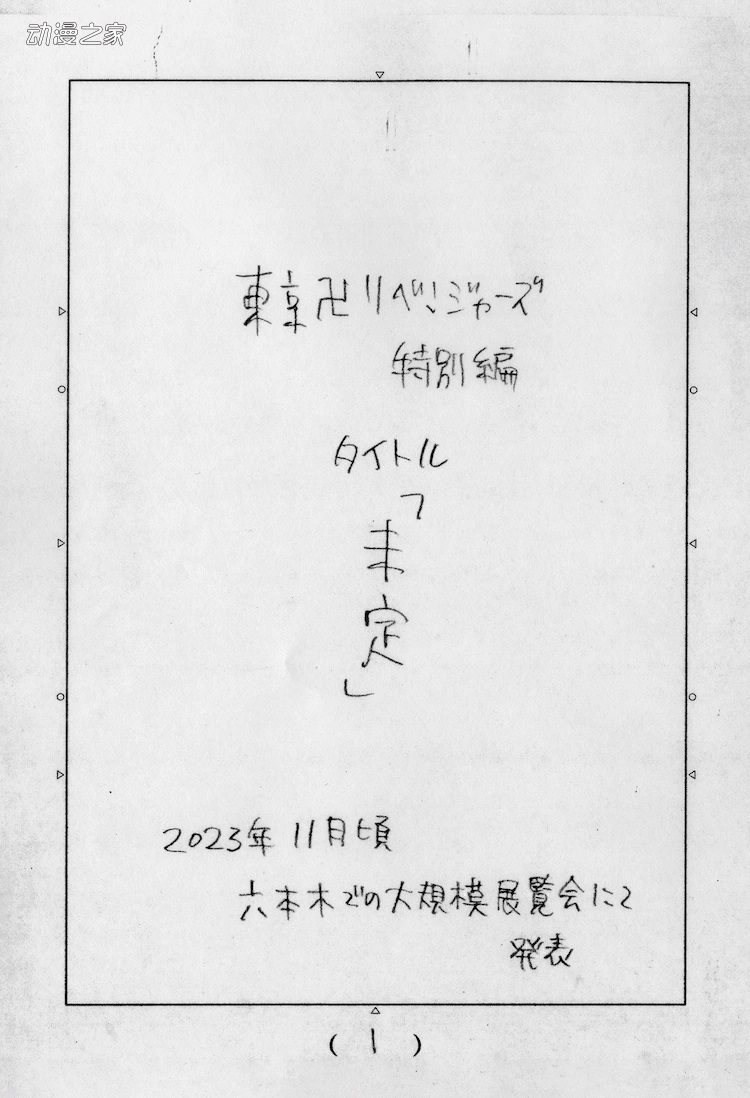 动漫之家
東京卍リベンジャーズ
特別編
タイトル
「未定」
2023年 11月頃
六本木での大規模展覧会にて
発表
(1)